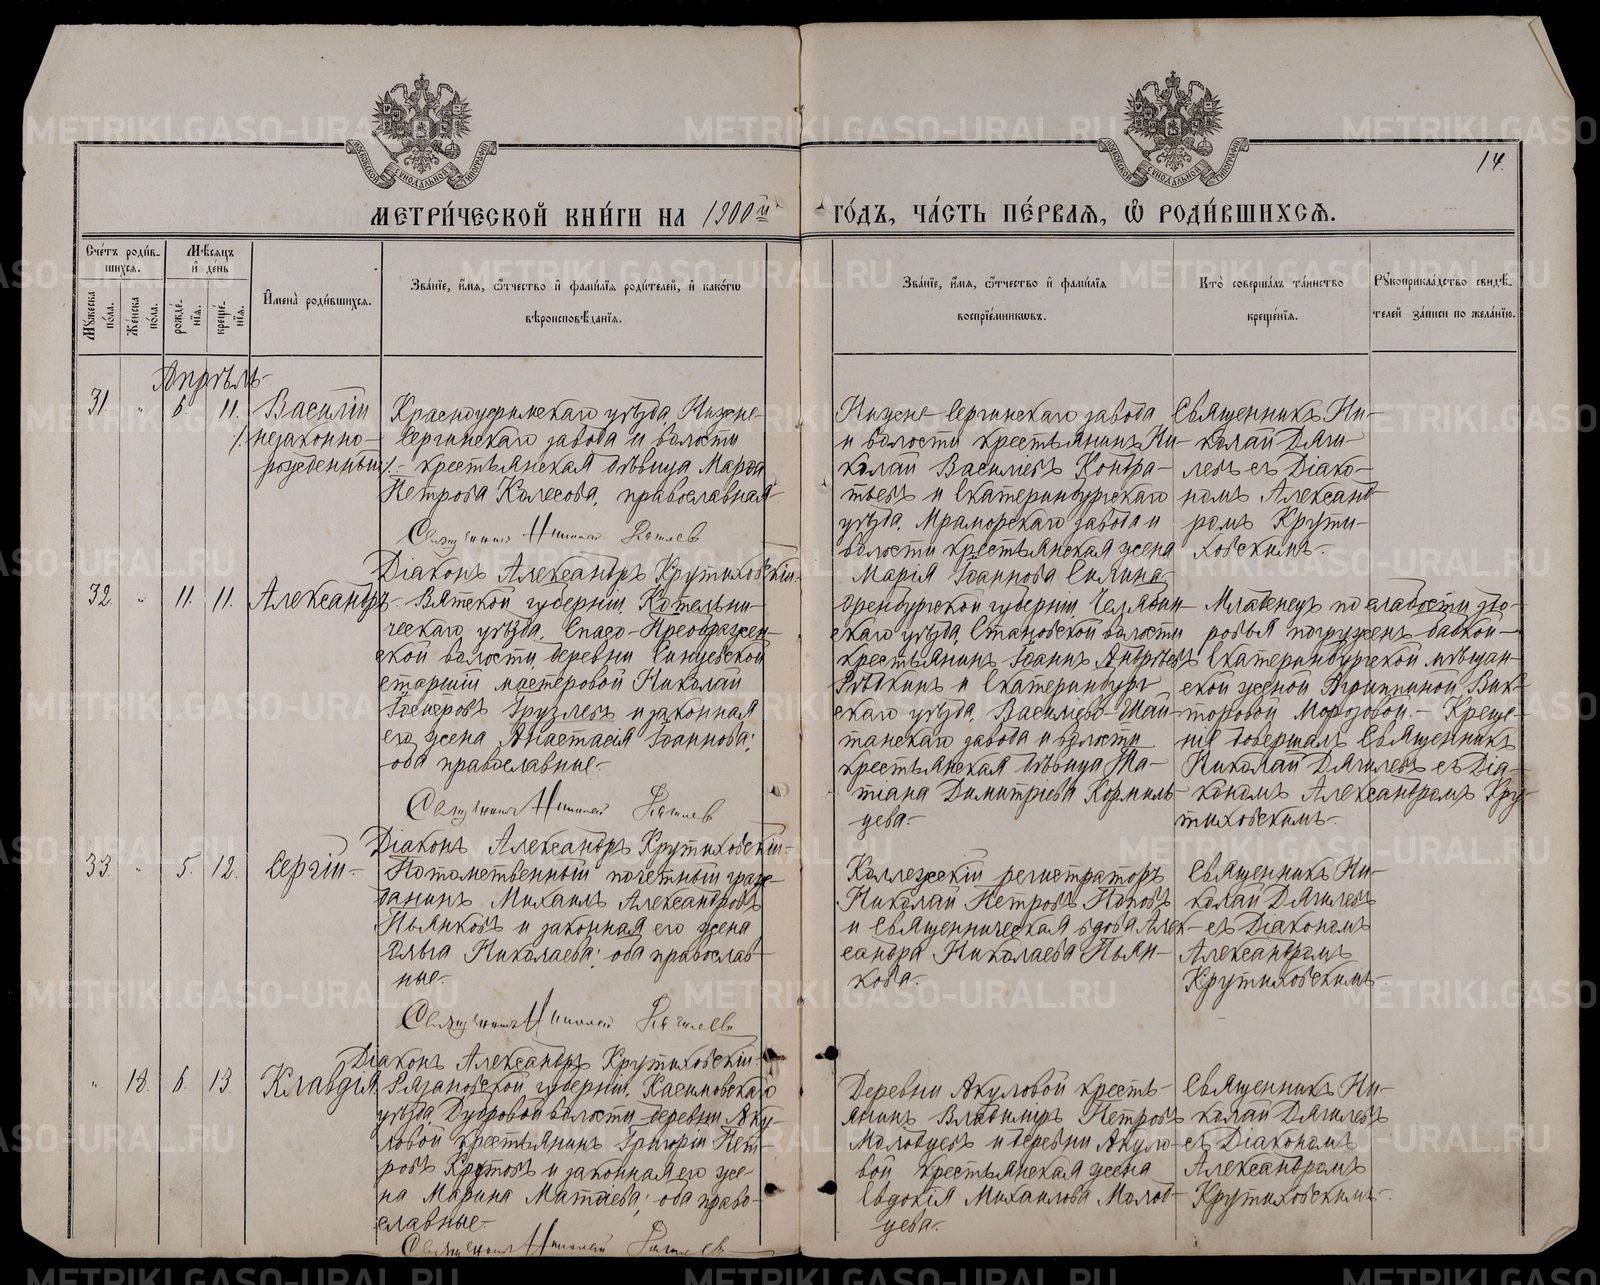 14.
МЕТРИ́ЧЕСКОЙ КНИ́ГИ НА 1900й ГО́ДЪ, ЧА́СТЬ ПЕ́РВАѦ, Ѿ РОДИ́ВШИХСѦ.
Сче́тъ роди́в-
шихсѧ.
Мꙋжеска по́ла.
Же́нска по́ла.
Мѣ́сѧцъ
и҆ де́нь
рожде́-
нїѧ.
креще́-
нїѧ.
И҆мена̀ роди́вшихсѧ.
Зва́нїе, и҆́мѧ, ѻ҆́тчество и҆ фами́лїѧ роди́телей, и҆ како́гѡ
вѣроисповѣ́данїѧ.
Зва́нїе, и҆́мѧ, ѻ҆́тчество и҆ фами́лїѧ
воспрїе́мникѡвъ.
Кто̀ соверша́лъ та́инство
креще́нїѧ.
Рꙋкоприкла́дство свидѣ́-
телей за́писи по жела́нїю.
Апрѣль
31. " 6. 11. Василій
незаконно-
рожденный
Красноуфимскаго уѣзда, Нижне-
Сергинскаго завода и волости
крестьянская дѣвица Марѳа
Петрова Колесова, православная
Священникъ Николай Дягилев
Діаконъ Александръ Крутиховскій.
Нижне-Сергинскаго завода
и волости крестьянинъ Ни-
колай Василіевъ Кондра-
тьевъ и Екатеринбургскаго
уѣзда, Мраморскаго завода и
волости крестьянская жена
Марія Іоаннова Силина
Священникъ Ни-
колай Дяги-
левъ съ Діако-
номъ Александ-
ромъ Крути-
ховскимъ.
32. " 11. 11. Александръ
Вятской губерніи, Котельни-
ческаго уѣзда, Спасо-Преображен-
ской волости, деревни Синцевской
старшій мастеровой Николай
Грузлевъ и законная
его жена Анастасія Іоаннова;
оба православные.
Священникъ Николай Дягилев
Діаконъ Александръ Крутиховскій.
Оренбургской губерніи, Челябин-
скаго уѣзда, Становской волости
крестьянинъ Іоаннъ Андреевъ
Рѣдкинъ и Екатеринбург-
скаго уѣзда, Васильево-Шай-
танскаго завода и волости
крестьянская дѣвица Та-
тіана Димитріева Кормиль-
цева.
Младенецъ по слабости здо-
ровья погруженъ бабкой-
Екатеринбургской мѣщан-
ской женой Агриппиной Вик-
торовой Морозовой. Креще-
ніе довершалъ Священникъ
Николай Дягилевъ съ Діа-
кономъ Александромъ Кру-
тиховскимъ.
33. " 5. 12. Сергій
Потомственный почетный граж-
данинъ Михаилъ Александровъ
Пьянковъ и законная его жена
Ольга Николаева; оба православ-
ные.
Священникъ Николай Дягилев
Діаконъ Александръ Крутиховскій.
Коллежскій регистраторъ
Николай Петровъ Поповъ
и священническая вдова Алек-
сандра Николаева Пьян-
кова.
Священникъ Ни-
колай Дягилевъ
съ Діакономъ
Александромъ
Крутиховскимъ.
" 18. 6. 13. Клавдія
Рязановской губерніи, Касимовскаго
уѣзда, Дубровой волости, деревни Аку-
ловой крестьянинъ Григорій Пет-
ровъ Крутовъ и законная его же-
на Марина Матѳіева; оба право-
славные.
Священникъ Николай Дягилев
Деревни Акуловой кресть-
янинъ Владимиръ Петровъ
Молодцевъ и деревни Акуло-
вой крестьянская жена
Евдокія Михаилова Молод-
цева.
Священникъ Ни-
колай Дягилевъ
съ Діакономъ
Александромъ
Крутиховскимъ.
METRIKI.GASO-URAL.RU